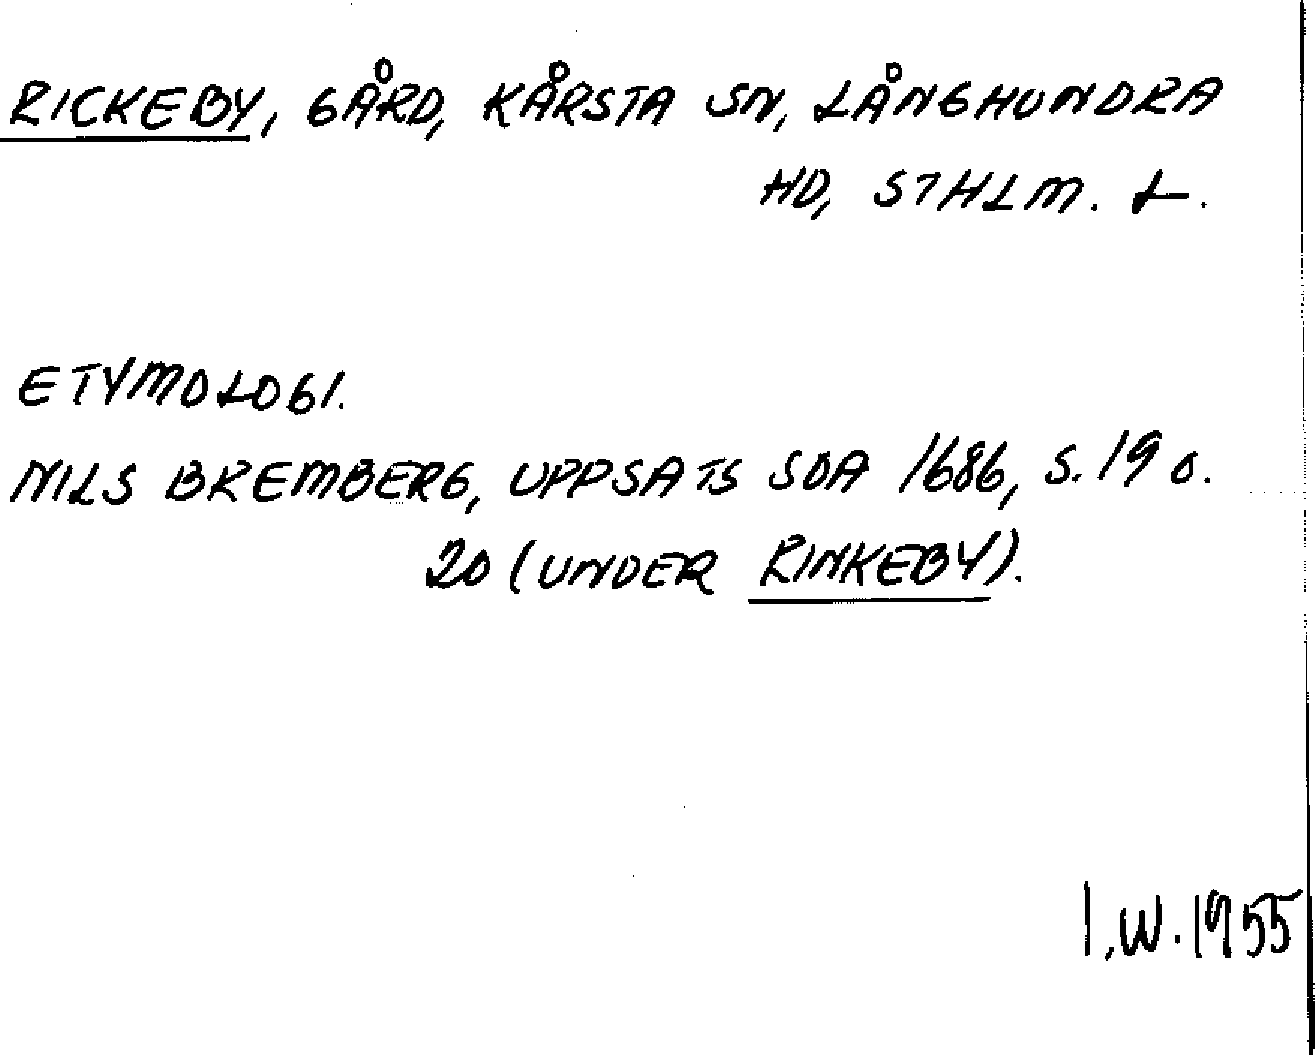 RICKEBY, GÅRD, KÅRSTA SN, LÅNGHUNDRA
HD, STHLM. L.
ETYMOLOGI.
NILS BREMBERG, UPPSATS SOA 1686, S. 19 o.
20 (UNDER RINKEBY).
I.W. 1955